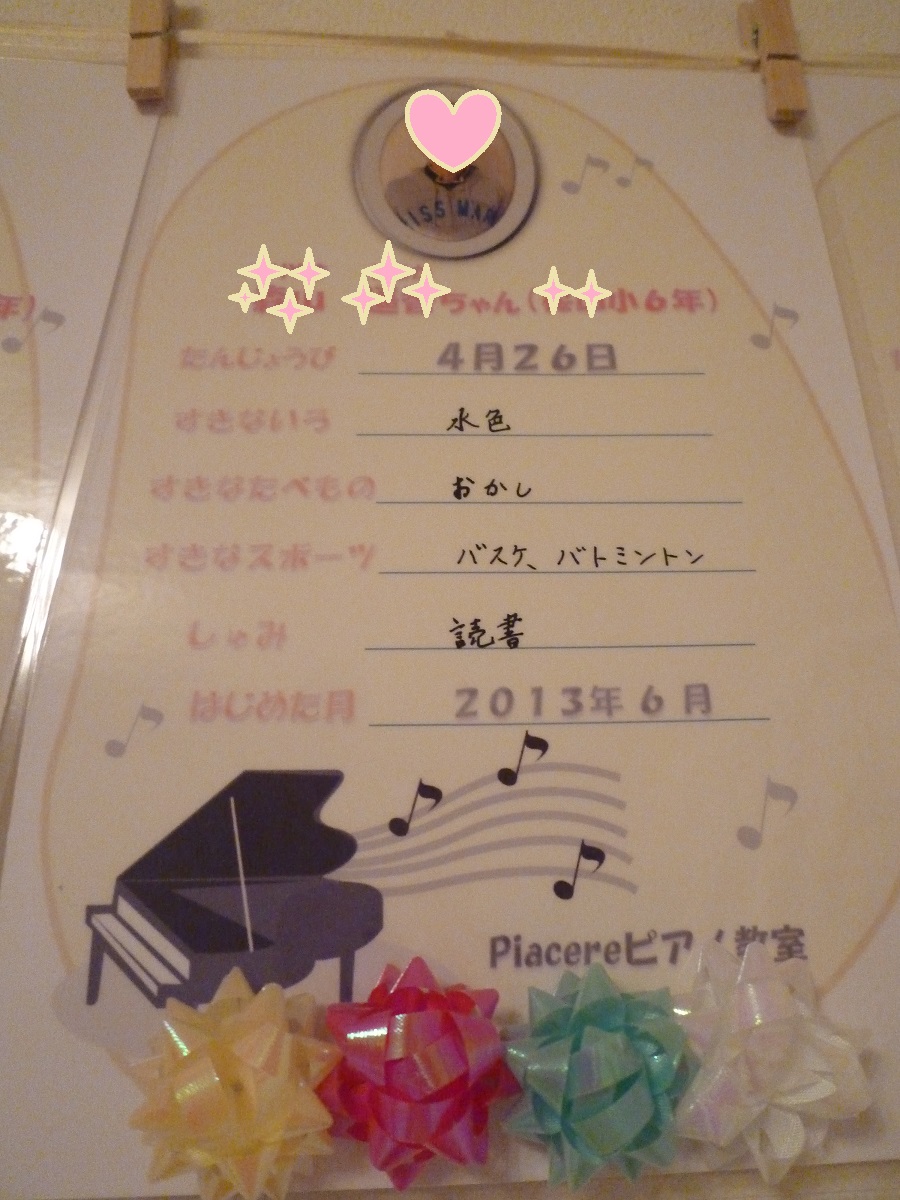 ISS MAR
ちゃん(小6年)
年)
たんじょうび 4月26日
すきないろ 水色
すきなたべもの おかし
すきなスポーツ バスケ、バトミントン
しゅみ 読書
はじめた月 2013年6月
Piacereピアノ教室